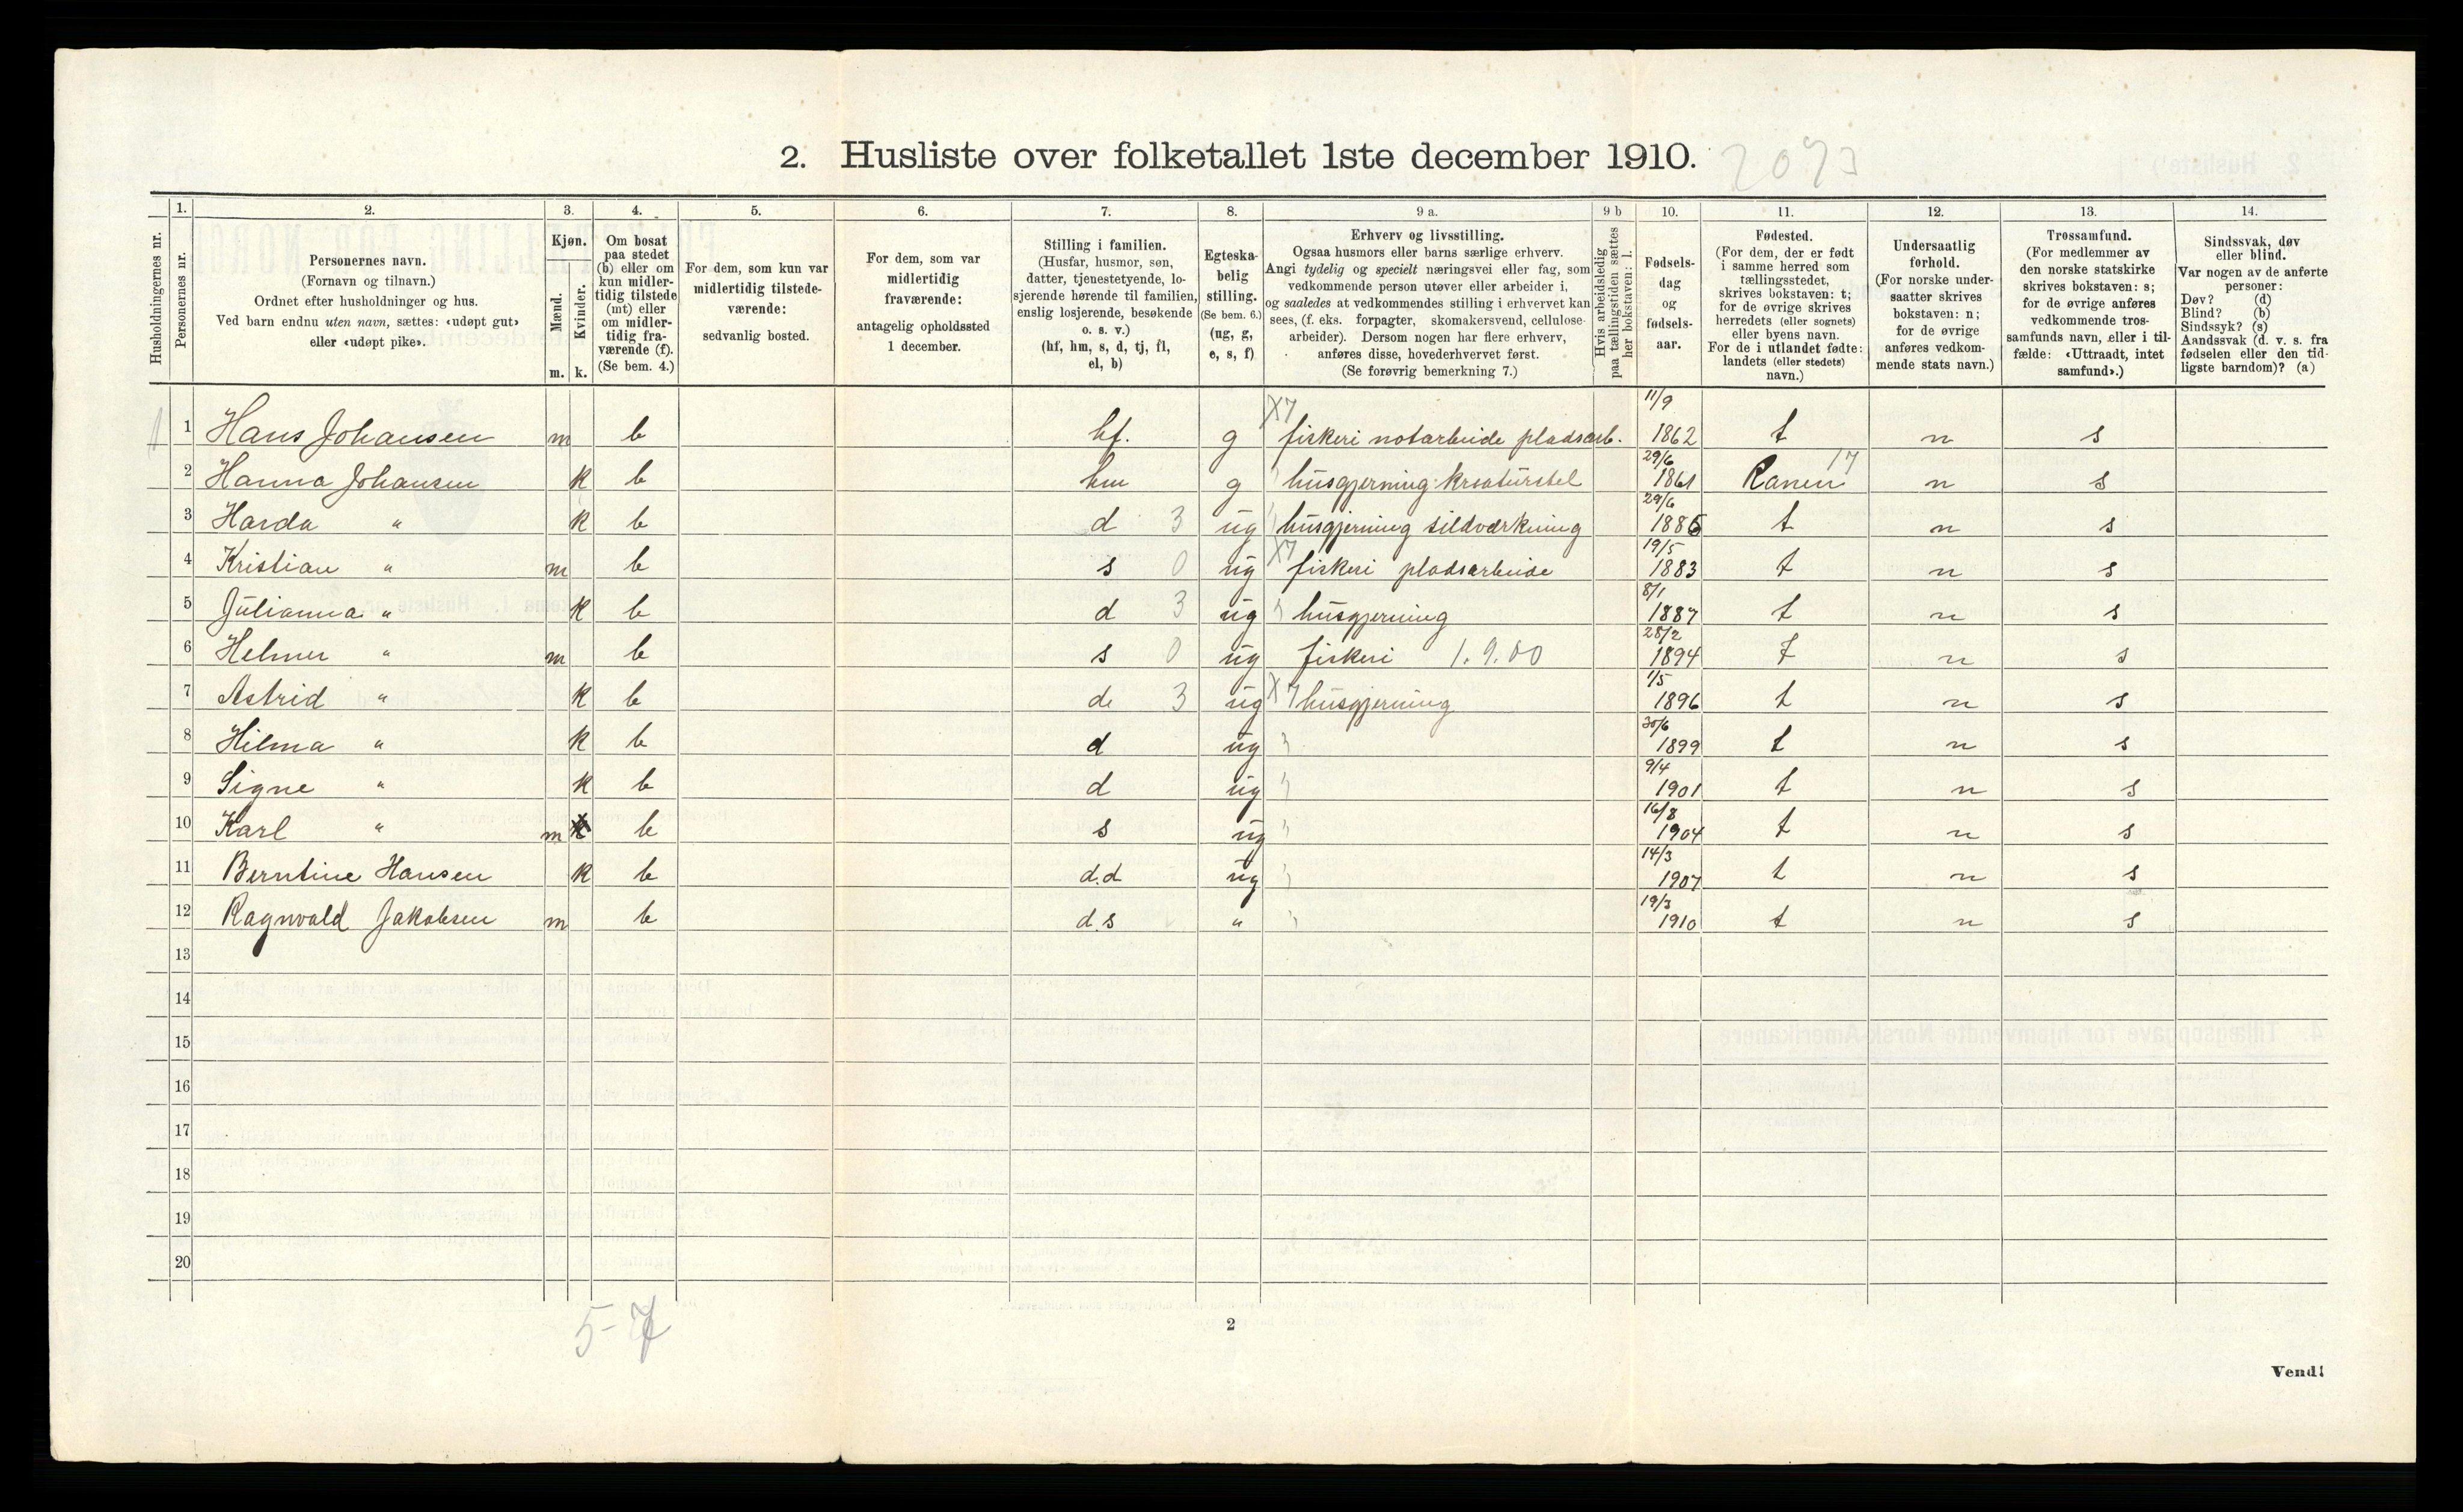 2. Husliste over folketallet 1ste december 1910. 2093
Husholdningernes nr.
Personernes nr.
1. 2. 3. 4. 5. 6. 7. 8. 9 a. 9 b 10. 11. 12. 13. 14.
Personernes navn.
(Fornavn og tilnavn.)
Ordnet efter husholdninger og hus.
Ved barn endnu uten navn, sættes: «udøpt gut»
eller «udøpt pike».
Kjøn.
Mænd.
Kvinder.
m. k.
Om bosat
paa stedet
(b) eller om
kun midler-
tidig tilstede
(mt) eller
om midler-
tidig fra-
værende (f).
(Se bem. 4.)
For dem, som kun var
midlertidig tilstede-
værende:
sedvanlig bosted.
For dem, som var
midlertidig
fraværende:
antagelig opholdssted
1 december.
Stilling i familien.
(Husfar, husmor, søn,
datter, tjenestetyende, lo-
sjerende hørende til familien,
enslig losjerende, besøkende
o. s. v.)
(hf, hm, s, d, tj, fl,
el, b)
Egteska-
belig
stilling.
(Se bem. 6.)
(ug, g,
e, s, f)
Erhverv og livsstilling.
Ogsaa husmors eller barns særlige erhverv.
Angi tydelig og specielt næringsvei eller fag, som
vedkommende person utøver eller arbeider i,
og saaledes at vedkommendes stilling i erhvervet kan
sees, (f. eks. forpagter, skomakersvend, cellulose-
arbeider). Dersom nogen har flere erhverv,
anføres disse, hovederhvervet først.
(Se forøvrig bemerkning 7.)
Hvis arbeidsledig
paa tællingstiden sættes
her bokstaven: l.
Fødsels-
dag
og
fødsels-
aar.
Fødested.
(For dem, der er født
i samme herred som
tællingsstedet,
skrives bokstaven: t;
for de øvrige skrives
herredets (eller sognets)
eller byens navn.
For de i utlandet fødte:
landets (eller stedets)
navn.)
Undersaatlig
forhold.
(For norske under-
saatter skrives
bokstaven: n;
for de øvrige
anføres vedkom-
mende stats navn.)
Trossamfund.
(For medlemmer av
den norske statskirke
skrives bokstaven: s;
for de øvrige anføres
vedkommende tros-
samfunds navn, eller i til-
fælde: «Uttraadt, intet
samfund».)
Sindssvak, døv
eller blind.
Var nogen av de anførte
personer:
Døv? (d)
Blind? (b)
Sindssyk? (s)
Aandssvak (d. v. s. fra
fødselen eller den tid-
ligste barndom)? (a)
1 1 Hans Johansen m b hf. g X7 fiskeri notarbeide pladsarb. 11/9 1862 t n s
2 Hanna Johansen k b hm g husgjerning kreaturstel 29/6 1861 Ranen 17 n s
3 Harda " k b d 3 ug husgjerning sildvørkning 29/6 1886 t n s
4 Kristian " m b s 0 ug X7 fiskeri pladsarbeide 19/5 1883 t n s
5 Julianna " k b d 3 ug husgjerning 8/1 1887 t n s
6 Helmer " m b s 0 ug fiskeri 1.9.00 28/2 1894 t n s
7 Astrid " k b d 3 ug X7 husgjerning 1/5 1896 t n s
8 Hilma " k b d ug 30/6 1899 t n s
9 Signe " k b d ug 9/4 1901 t n s
10 Karl " m b s ug 16/8 1904 t n s
11 Berntine Hansen k b d.d ug 14/3 1907 t n s
12 Ragnvald Jakobsen m b d.s " 19/3 1910 t n s
13
14
15
16
17
18
19
20
5-7
2
Vend!